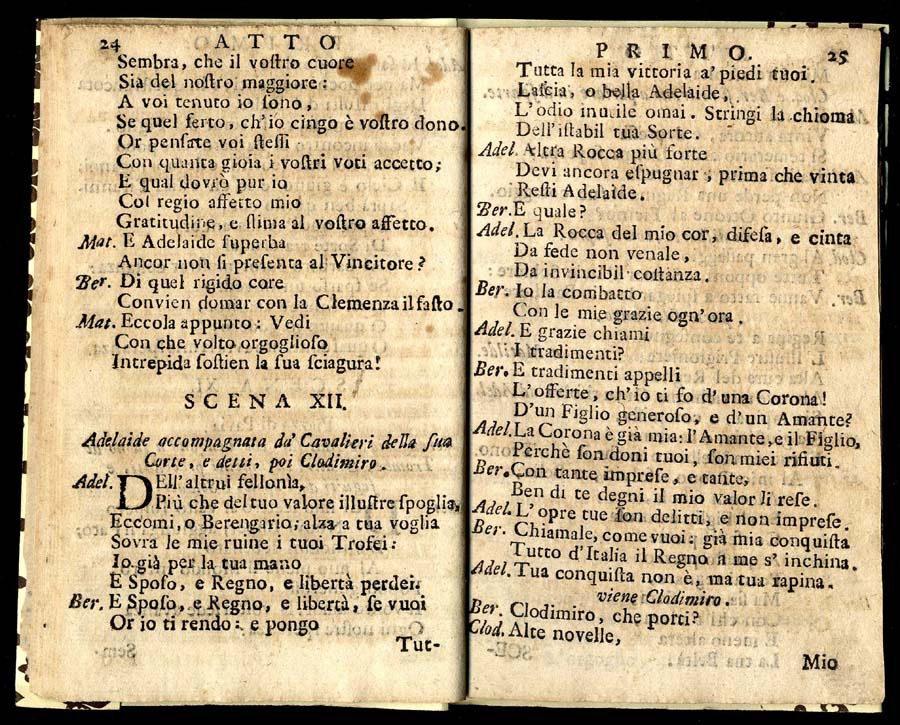 24 ATTO
Sembra, che il voſtro cuore
Sia del noſtro maggiore:
A voi tenuto io ſono,
Se quel ſerto, ch'io cingo è voſtro dono.
Or penſate voi ſteſſi
Con quanta gioia i voſtri voti accetto;
E qual dovrò pur io
Col regio affetto mio
Gratitudine, e ſtima al voſtro affetto.
Mat. E Adelaide ſuperba
Ancor non ſi preſenta al Vincitore?
Ber. Di quel rigido core
Convien domar con la Clemenza il faſto.
Mat. Eccola appunto: Vedi
Con che volto orgoglioſo
Intrepida ſoſtien la ſua ſciagura!
SCENA XII.
Adelaide accompagnata da' Cavalieri della ſua
Corte, e detti, poi Clodimiro.
Adel. DEll'altrui fellonìa,
Più che del tuo valore illuſtre ſpoglia,
Eccomi, o Berengario; alza a tua voglia
Sovra le mie ruine i tuoi Trofei:
Io già per la tua mano
E Spoſo, e Regno, e libertà perdei.
Ber. E Spoſo, e Regno, e libertà, ſe vuoi
Or io ti rendo: e pongo
Tut-
PRIMO. 25
Tutta la mia vittoria a' piedi tuoi,
Laſcia, o bella Adelaide,
L'odio inutile omai. Stringi la chioma
Dell'iſtabil tua Sorte.
Adel. Altra Rocca più forte
Devi ancora eſpugnar, prima che vinta
Reſti Adelaide.
Ber. E quale?
Adel. La Rocca del mio cor, difeſa, e cinta
Da fede non venale,
Da invincibil coſtanza.
Ber. Io la combatto
Con le mie grazie ogn'ora.
Adel. E grazie chiami
I tradimenti?
Ber. E tradimenti appelli
L'offerte, ch'io ti fo d'una Corona!
D'un Figlio generoſo, e d'un Amante?
Adel. La Corona è già mia: l'Amante, e il Figlio,
Perchè ſon doni tuoi, ſon miei rifiuti.
Ber. Con tante impreſe, e tante,
Ben di te degni il mio valor li reſe.
Adel. L'opre tue ſon delitti, e non impreſe.
Ber. Chiamale, come vuoi: già mia conquiſta
Tutto d'Italia il Regno a me s'inchina.
Adel. Tua conquiſta non è, ma tua rapina.
viene Clodimiro.
Ber. Clodimiro, che porti?
Clod. Alte novelle,
Mio